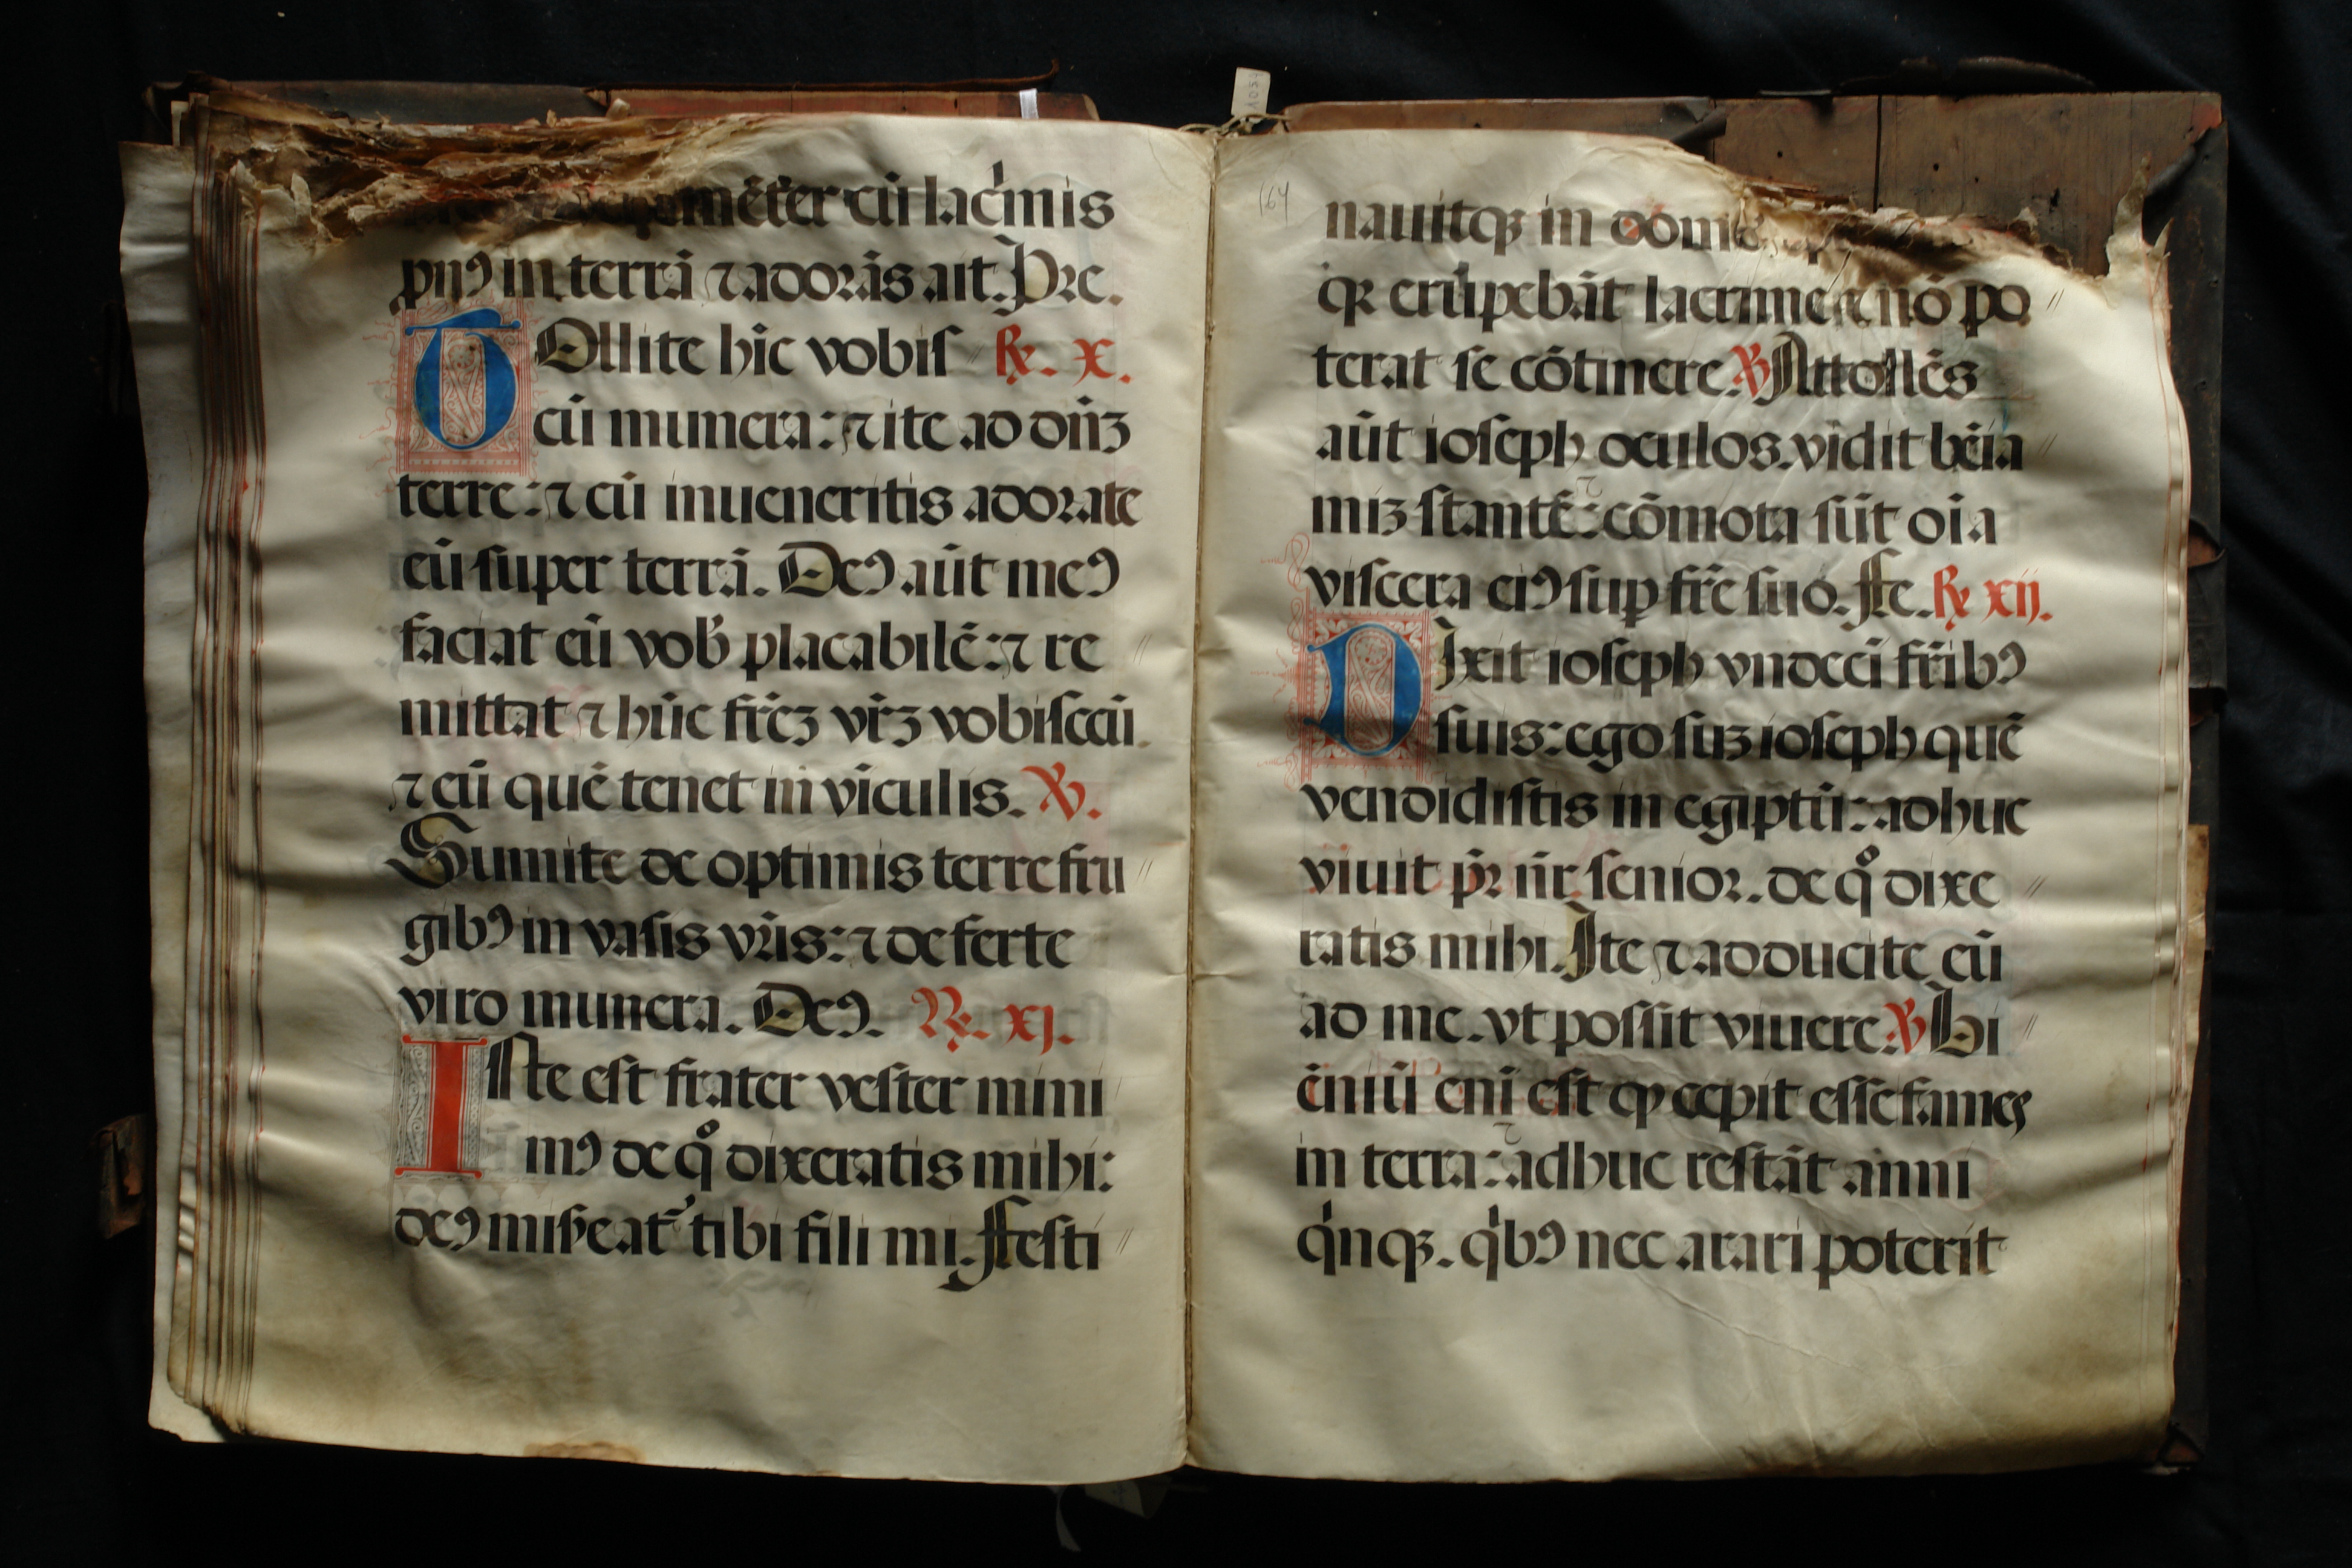 meēter cū lac̍mis
pnꝰ in terrā ⁊ adorās ait. Pre.
TOllite hic vobiſ ℟. x.
cū munera: ⁊ ite ad dn̄ʒ
terre: ⁊ cū inueneritis adorate
eū ſuper terrā. Deꝰ aūt meꝰ
faciat eū vob̕ placabilē: ⁊ re〃
mittat ⁊ hūc fr̄eʒ vr̄ʒ vobiſcū.
⁊ eū quē tenet in viculis. ℣.
Sumite de optimis terre fru〃
gibꝰ in vaſis vr̄is: ⁊ deferte
viro munera. Deꝰ. ℟. xj.
Iſte eſt frater veſter mini
mꝰ de qͦ dixeratis mihi:
deꝰ miſʼeat᷑ tibi fili mi. Feſti〃
164
nauitqꝫ in dom
qꝛ erūpebāt lacrime ⁊ nō po〃
terat ſe cōtinere ℣ Attollēs
aūt ioſeph oculos. vidit bēia〃
miʒ ſtantē: ⁊ cōmota ſūt oīa
viſcera eiꝰ ſuꝑ fr̄e ſuo. Fe. ℟ xij.
DIxit ioſeph vndeci fr̄ibꝰ
ſuis: ego ſuʒ ioſeph quē
vendidiſtis in egiptū: adhuc
viuit pr̄ nr̄ ſenior. de qͦ dixe〃
ratis mihi. Ite ⁊ adducite eū
ad me. vt poſſit viuere ℣ Bi〃
ēniū eni eſt ꝙ cepit eſſe fames
in terra: ⁊ adhuc reſtāt anni
qͥnqꝫ. qͥbꝰ nec arari poterit
1059